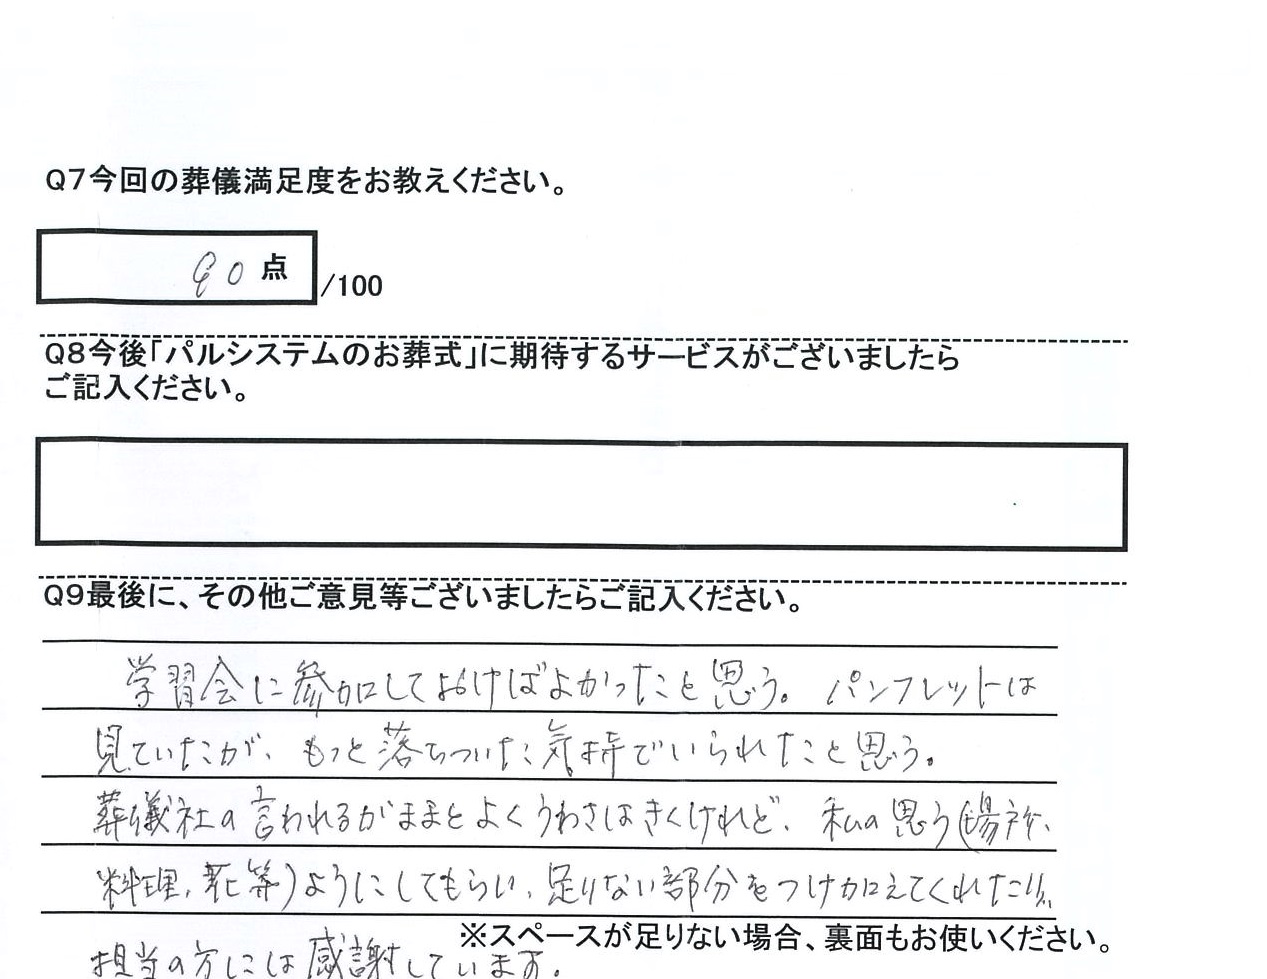 Q7今回の葬儀満足度をお教えください。
90点
/100
Q8今後｢パルシステムのお葬式｣に期待するサービスがございましたら
ご記入ください。
Q9最後に、その他ご意見等ございましたらご記入ください。
学習会に参加しておけばよかったと思う。パンフレットは
見ていたが、もっと落ちついた気持でいられたと思う。
葬儀社の言われるがままとよくうわさはきくけれど、私の思う(場所、
料理、花等)ようにしてもらい、足りない部分をつけ加えてくれたり、
※スペースが足りない場合、裏面もお使いください。
担当の方には感謝しています。